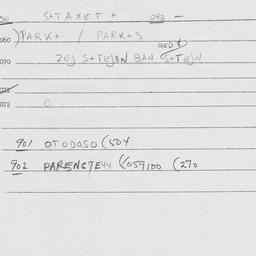 041 S+TAXET + 042 —
060 )PARK+ / PARK+S
070 ZEJ S+TEJ3N BAN S+TEJN
072
072 0
901 OTODOSO (504
902 PARENCTE44 (059100 (270